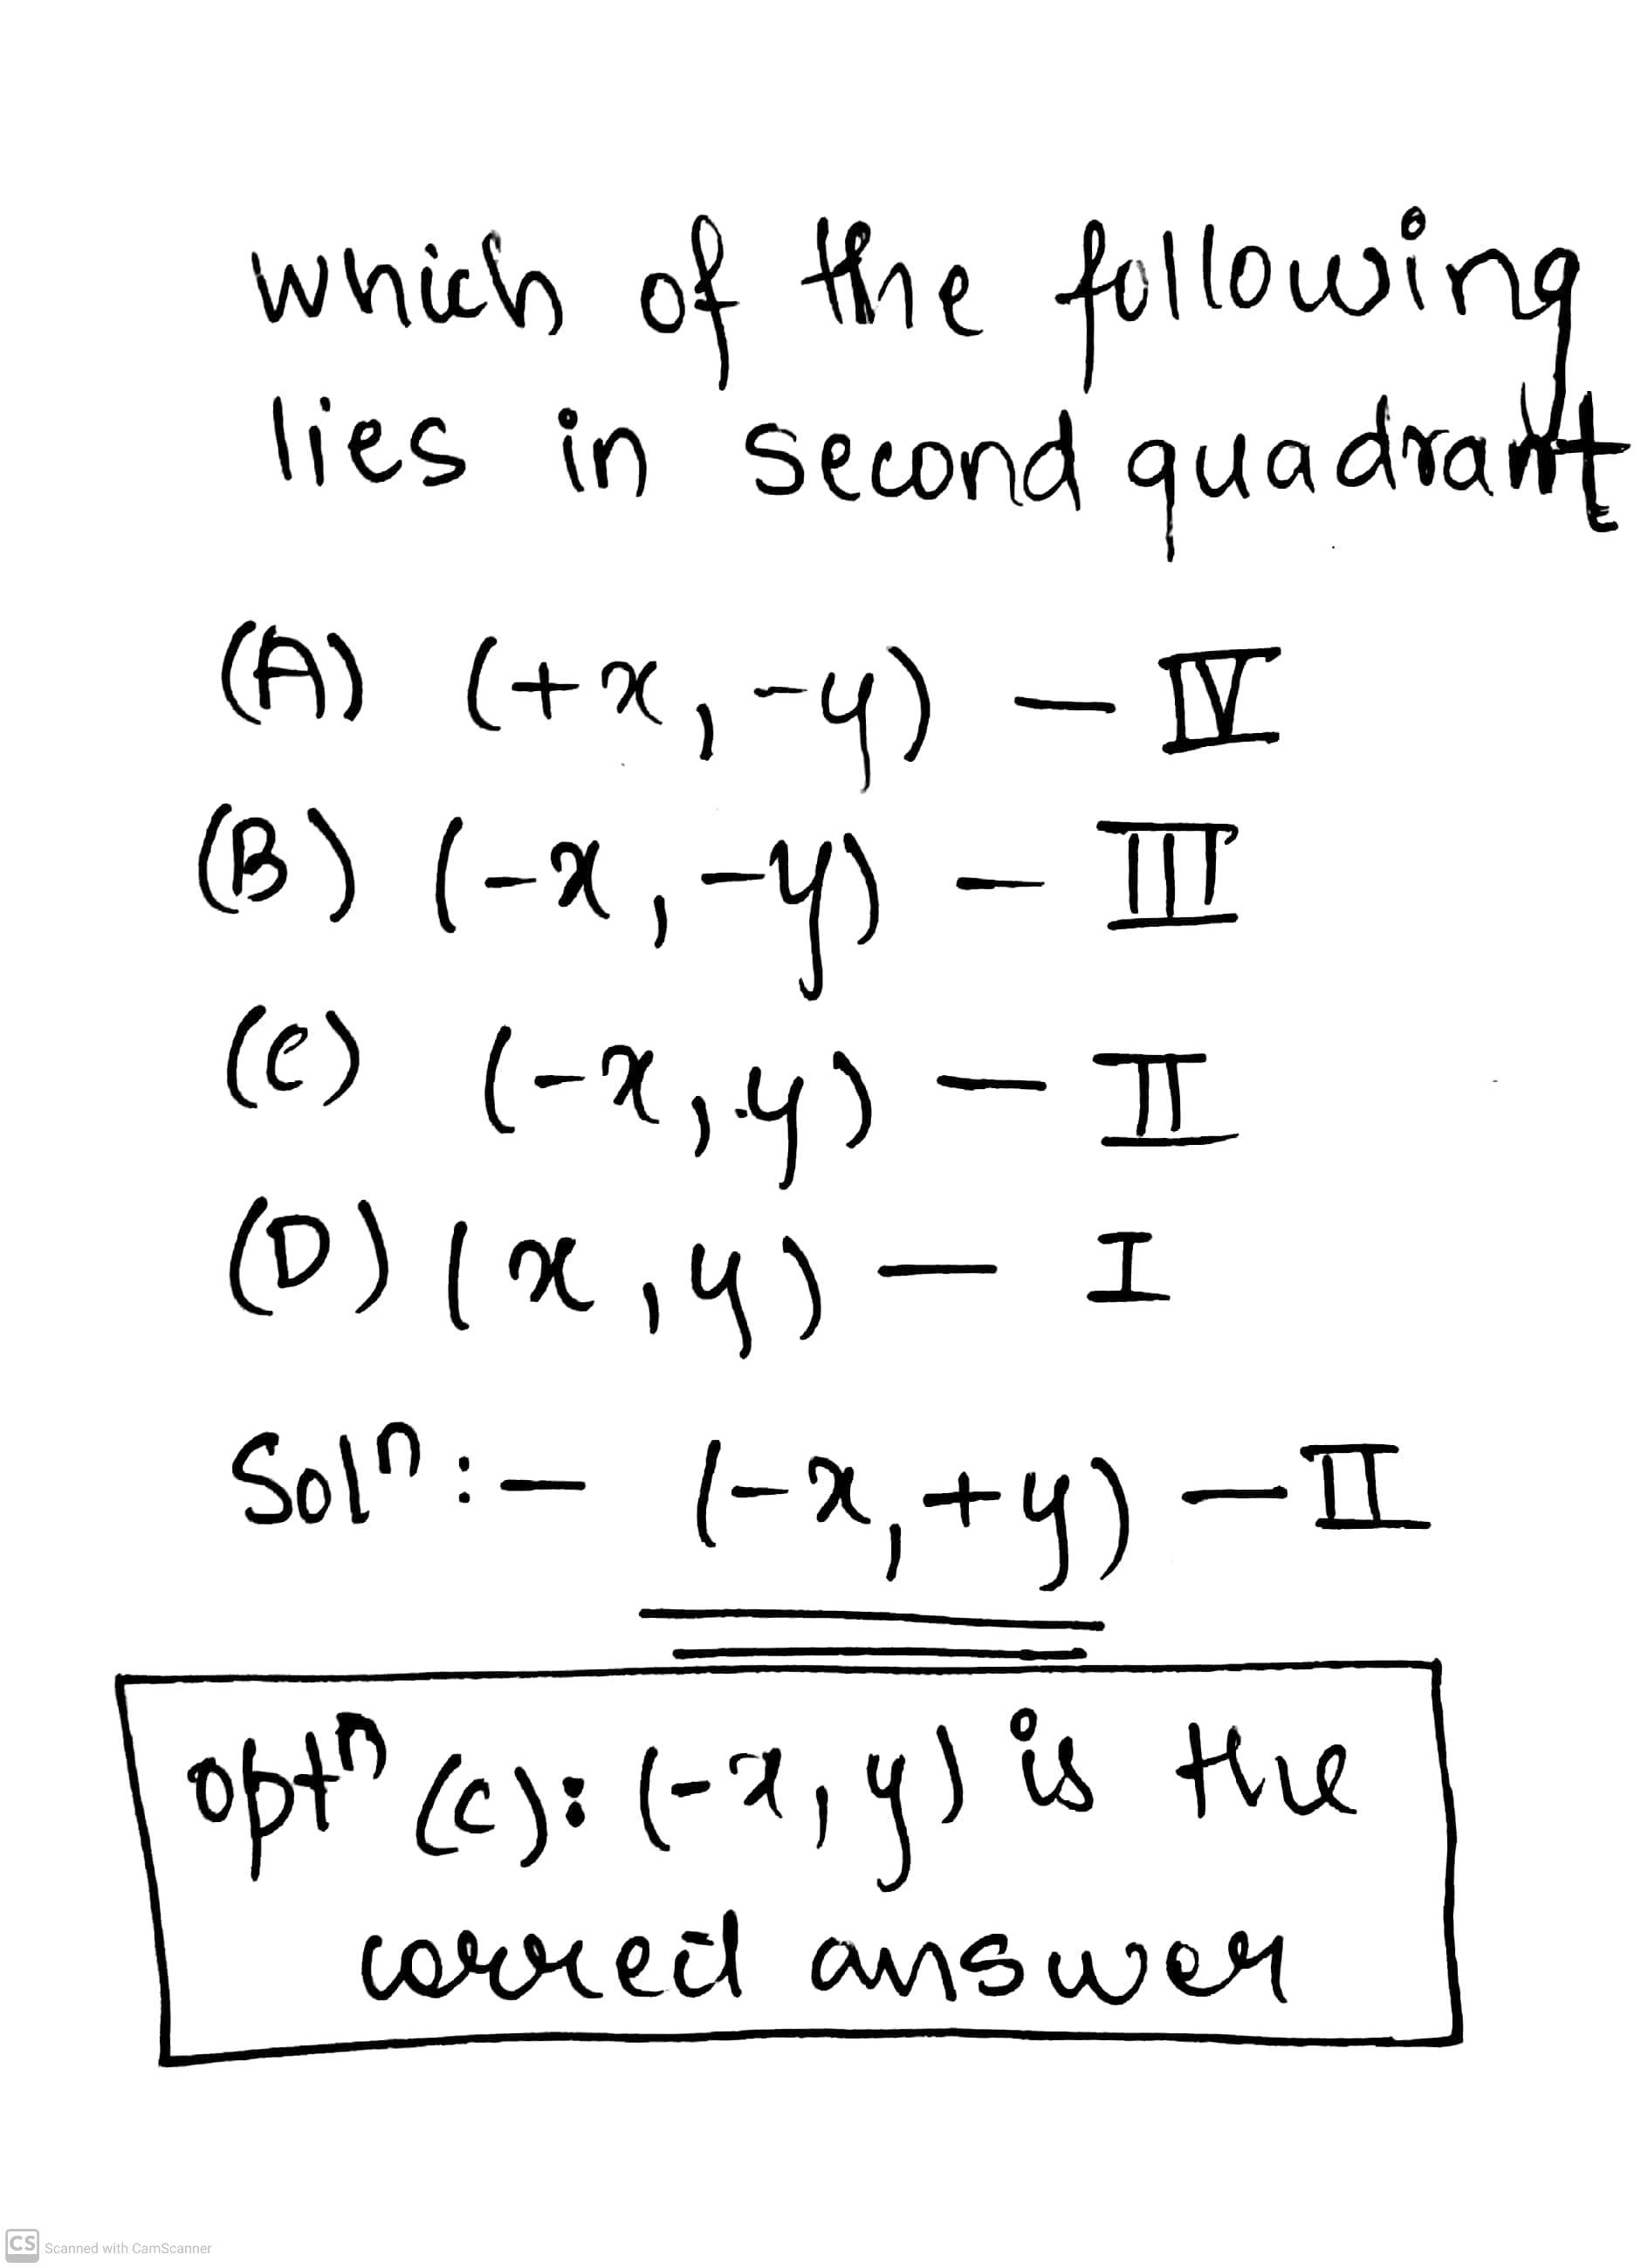 which of the following
lies in second quadrant
(A) (+x, -y) — IV
(B) (-x, -y) — III
(C) (-x, y) — II
(D) (x, y) — I
Solⁿ :— (-x, +y) — II
optⁿ (c): (-x, y) is the
correct answer
CS Scanned with CamScanner